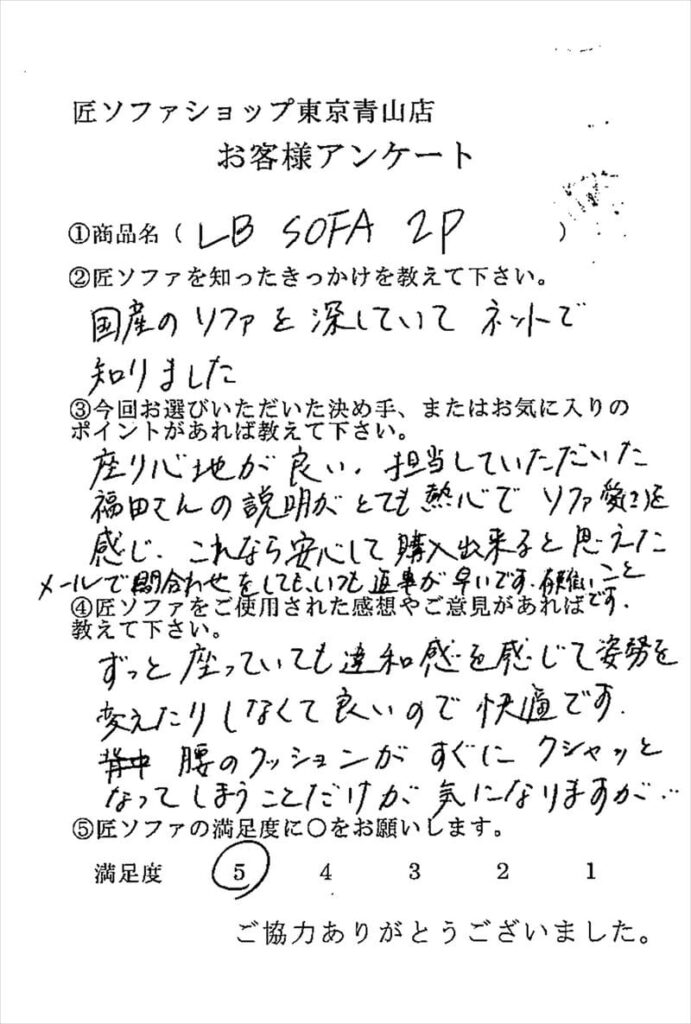 匠ソファショップ東京青山店
お客様アンケート
①商品名（ LB SOFA 2P ）
②匠ソファを知ったきっかけを教えて下さい。
国産のソファを深していて ネットで
知りました
③今回お選びいただいた決め手、またはお気に入りの
ポイントがあれば教えて下さい。
座り心地が良い、担当していただいた
福田さんの説明がとても熱心で ソファ愛を
感じ、これなら安心して購入出来ると思えた
メールで問合わせをしても、いつも返事が早いです。有難いこと
です。
④匠ソファをご使用された感想やご意見があれば
教えて下さい。
ずっと座っていても違和感を感じて姿勢を
変えたりしなくて良いので快適です。
腰のクッションがすぐにクシャッと
なってしまうことだけが気になりますが…
⑤匠ソファの満足度に〇をお願いします。
満足度 5 4 3 2 1
ご協力ありがとうございました。